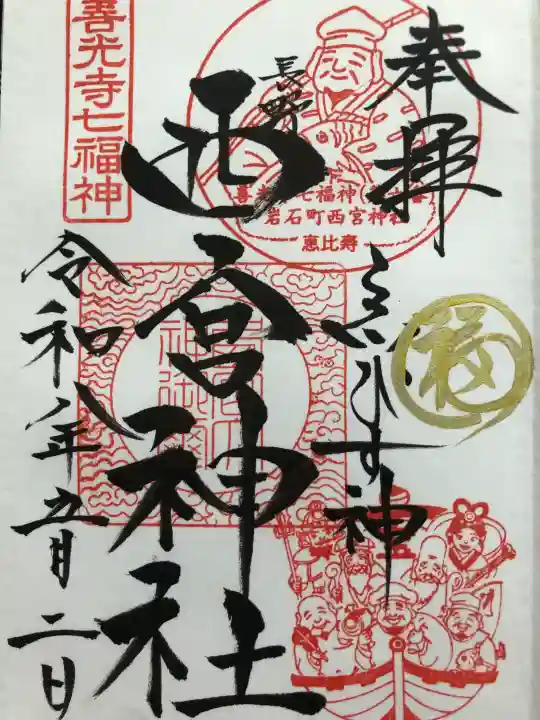 奉拝
ゑびす神
福
長野
西宮神社
岩石町西宮神社
恵比寿
善光寺七福神
令和八年五月二日